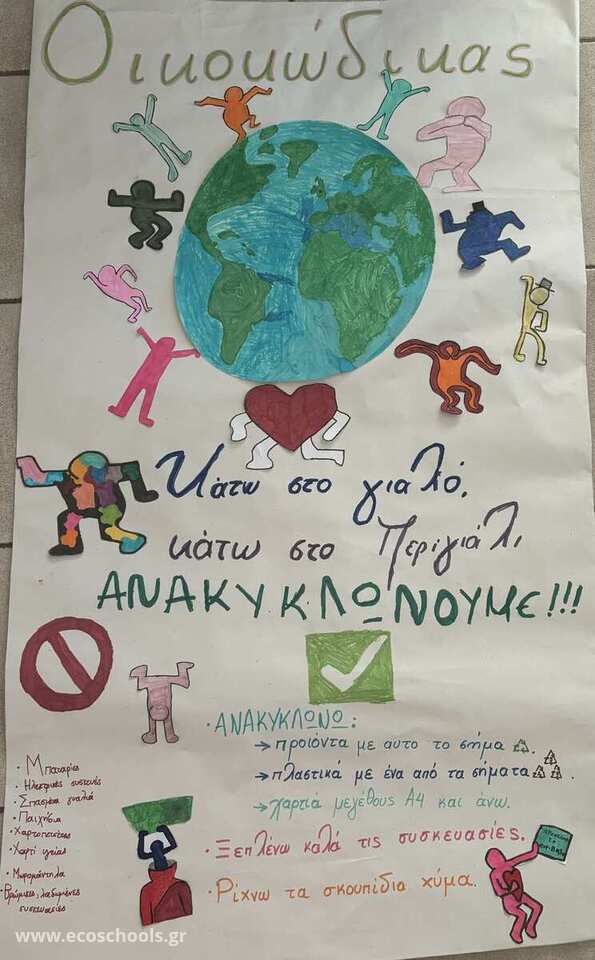 Οικοκώδικας
Κάτω στο γιαλό,
κάτω στο Περιγιάλι
ΑΝΑΚΥΚΛΩΝΟΥΜΕ!!!
· ΑΝΑΚΥΚΛΩΝΩ:
→ προϊόντα με αυτο το σήμα.
→ πλαστικά με ένα από τα σήματα.
→ χαρτιά μεγέθους Α4 και άνω.
· Ξεπλένω καλά τις συσκευασίες.
· Ρίχνω τα σκουπίδια χύμα.
· Μπαταρίες
· Σπασμένα γυαλιά
· Παιχνίδια
· Χαρτοπετσέτες
· Χαρτί υγείας
· Μωρομάντηλα
· Βρώμικες, λαδωμένες
συσκευασίες
www.ecoschools.gr